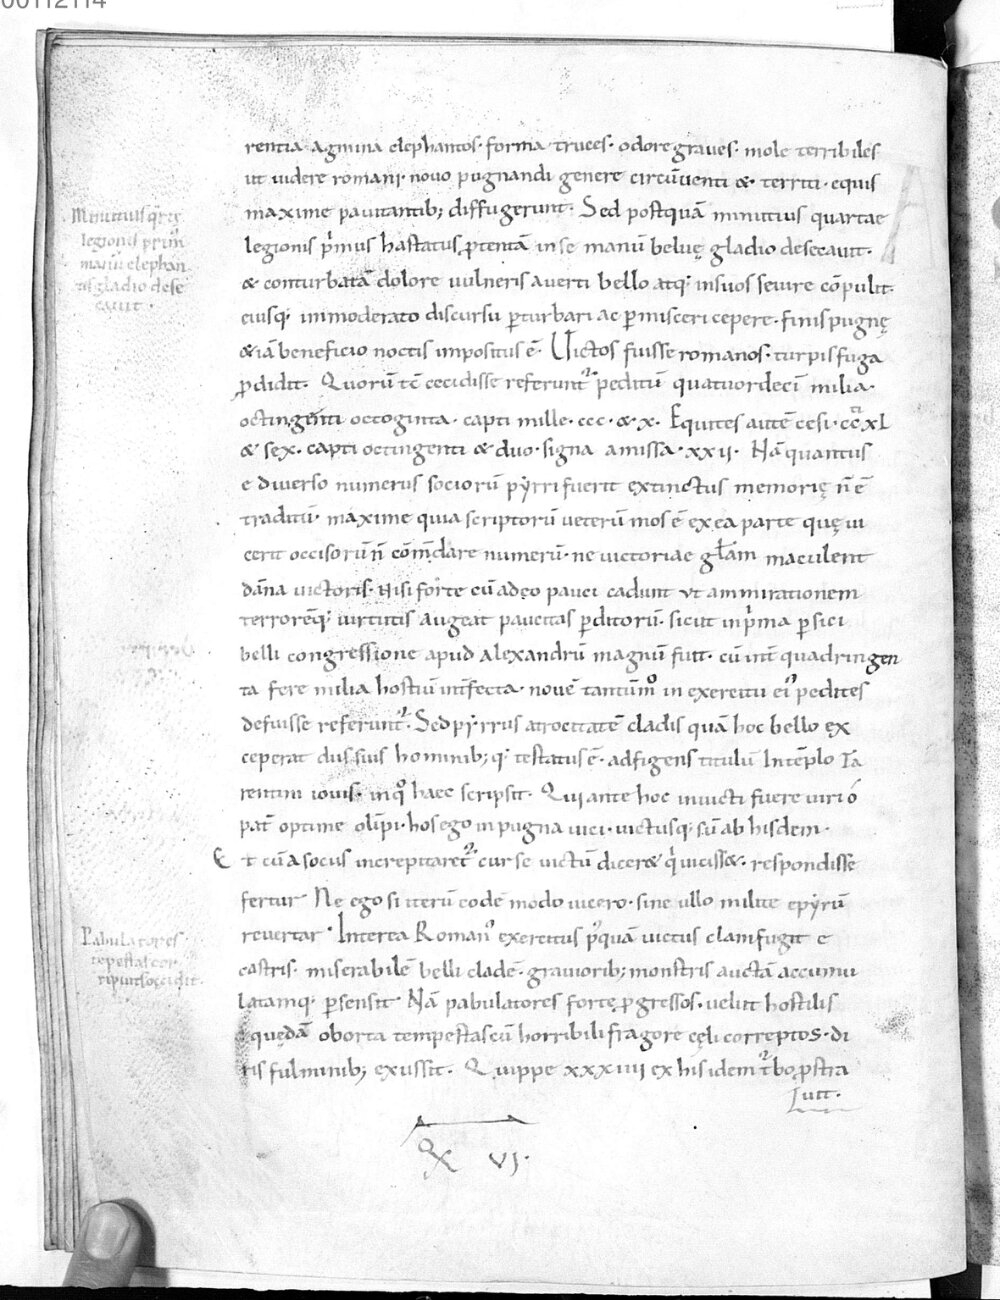 00112114
rentia agmina elephantos· forma truces· odore graues· mole terribiles
ut uidere romani· nouo pugnandi genere circūuenti & territi· equis
maxime pauitantib; diffugerunt· Sed postquā minutius quartae
Minutius q̄rtę
legionis prim̄
manū elephan
tis gladio dese
cauit·
legionis p̄mus hastatus ꝓtentā in se manū beluę gladio desecauit·
& conturbatā dolore uulneris auerti bello atq; insuos seuire cōpulit·
eiusq; immoderato discursu ꝑturbari ac ꝑmisceri cepere· finis pugnę
& iā beneficio noctis impositus ē· Uictos fuisse romanos· turpis fuga
ꝓdidit· Quorū tc̄ cecidisse referunt᷑ peditū quatuordeci milia
octingenti octoginta· capti mille· ccc· & x· Equites autē cesi· cc xL
& sex· capti octingenti & duo· signa amissa· xxii· Nā quantus
e diuerso numerus sociorū pyrri fuerit extinctus memorię n̄ ē
traditū· maxime quia scriptorū ueterū mos ē ex ea parte quę ui
cerit occisorū n̄ cōm̄dare numerū· ne uictoriae gl̄am maculent
dāna uictoris· Nisi forte cū adeo pauci cadunt ut ammirationem
terrorēq; uirtutis augeat paucitas ꝑditorū· sicut in p̄ma ꝑsici
belli congressione apud alexandrū magnū fuit· cū int̄ quadringen
ta fere milia hostiū int̄fecta· nouē tantūmͦ in exercitu ei᷒ pedites
defuisse referunt᷑· Sed pyrrus atrocitatē cladis quā hoc bello ex
ceperat dus suis hominib; q; testatus ē· adfigens titulū In tēplo Ta
rentini iouis· in qͦ haec scripsit· Qui ante hoc inuicti fuere uiri ó
pat̄ optime olīpi· hos ego in pugna uici· uictusq; sū ab hisdem·
Et cū a sociis increpitaret᷑ cur se uictū dicer& q̇ uiciss&· respondisse
fertur Ne ego si iterū eodē modo uicero· sine ullo milite epyrū
reuertar· Interea Roman᷒ exercitus p᷒quā uictus clam fugit e
Pabulatores
tepestas cor
ripuit & occidit
castris· miserabilē belli cladē· grauiorib; monstris auctā accumu
latamq; ꝑsensit· Nā pabulatores forte ꝓgressos· uelut hostilis
quędā oborta tempestas cū horribili fragore cęli correptos· di
ris fulminib; exussit· Quippe xxxiiii ex his idem t᷑bo ꝓstra
uit·
Q X VI·